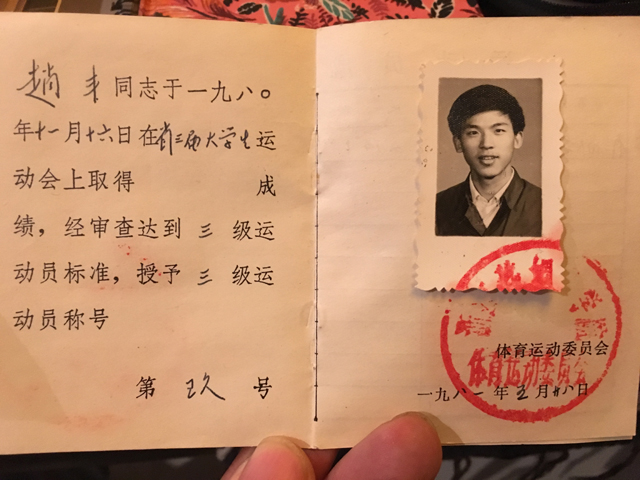 趙丰同志于一九八〇
年十一月十六日在省三届大学生运
动会上取得 成
绩，经审查达到 三 级运
动员标准，授予 三 级运
动员称号
第 玖 号
体育运动委员会
体育运动委员会
一九八一年五月廿八日